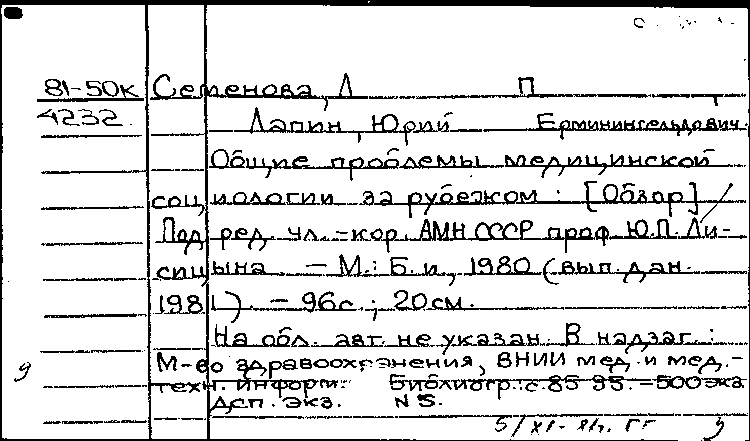 81-50к Семенова, Л П
4232. Лапин, Юрий Ерминингельдович.
Общие проблемы медицинской
социологии за рубежом : [Обзор] /
Под ред. чл.-кор. АМН СССР проф. Ю.П. Ли-
сицына. – М.: Б. и., 1980 (вып. дан.
1981). – 96с. ; 20см.
На обл. авт. не указан. В надзаг. :
М-во здравоохранения, ВНИИ мед. и мед.-
техн. информ. Библиогр.: с. 85-95. – 500 экз
Дсп. экз. N 5.